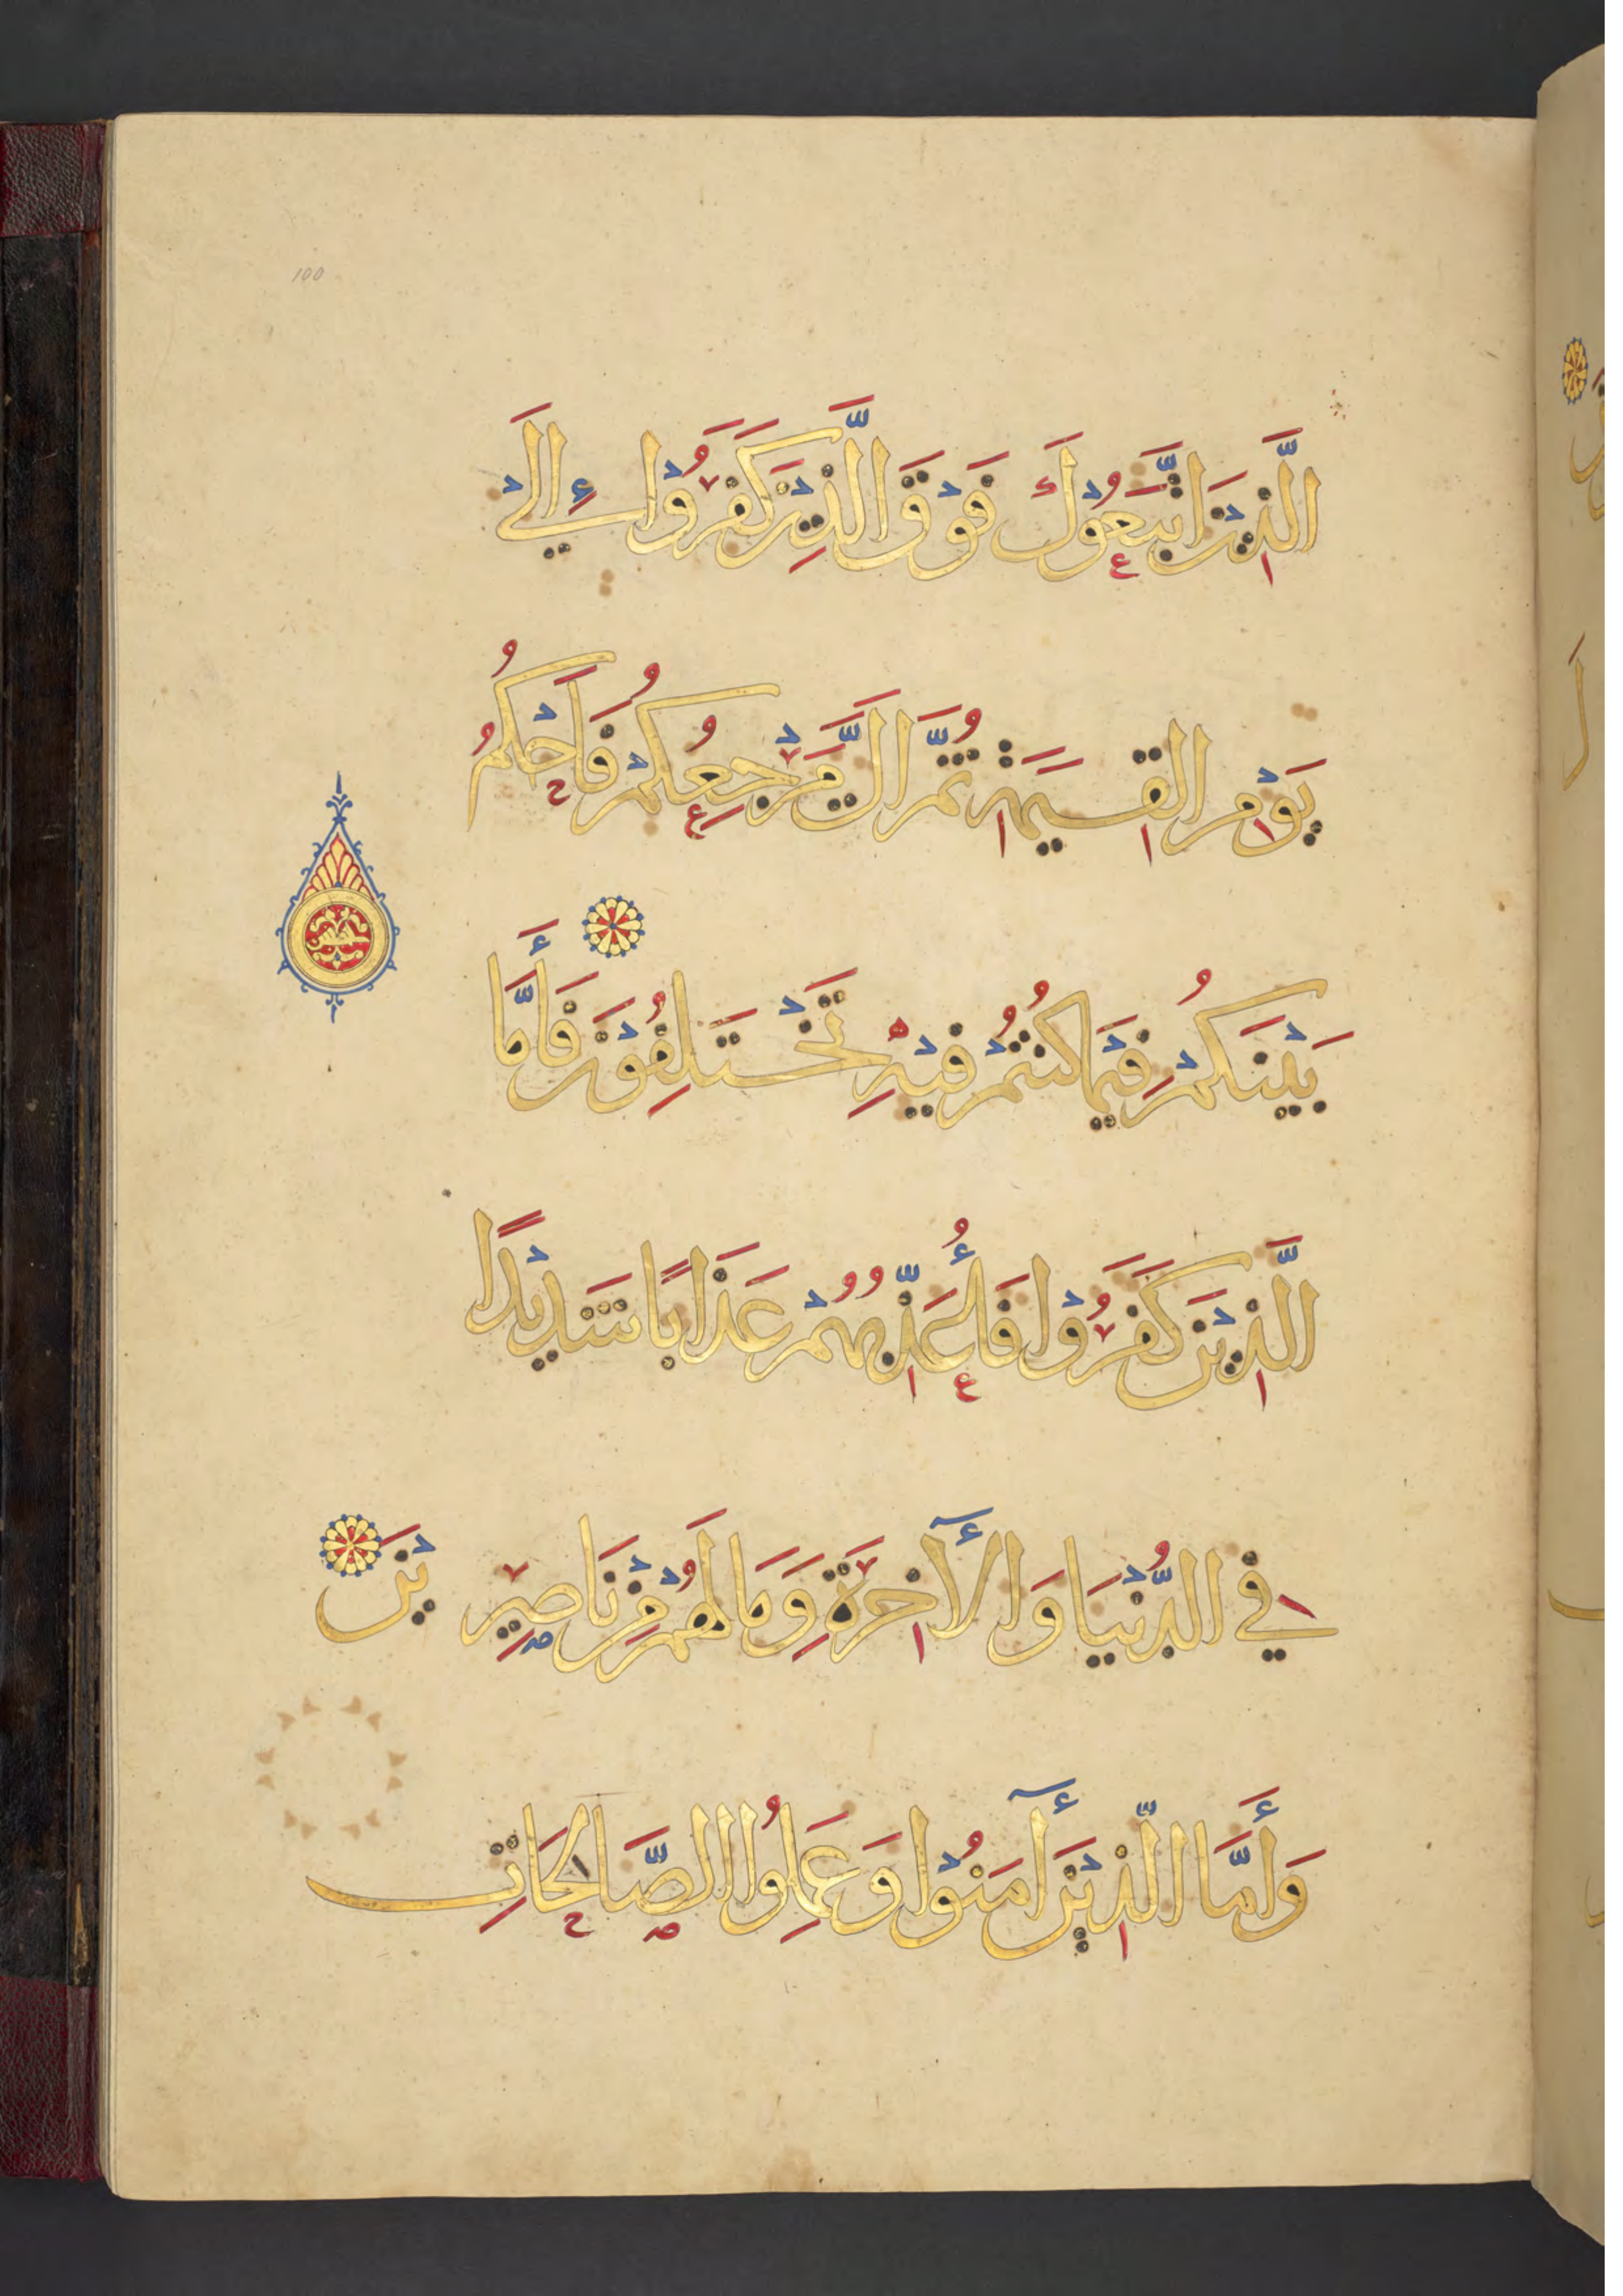 100
الَّذِيْنَ اتَّبَعُوْكَ فَوْقَ الَّذِيْنَ كَفَرُوْا إِلَىْ
يَوْمِ الْقِيٰمَةِ ثُمَّ اِلَيَّ مَرْجِعُكُمْ فَاَحْكُمُ
بَيْنَكُمْ فِيْمَا كُنْتُمْ فِيْهِ تَخْتَلِفُوْنَ فَأَمَّا
الَّذِيْنَ كَفَرُوْا فَأُعَذِّبُهُمْ عَذَابًا شَدِيْدًا
فِي الدُّنْيَا وَالْآخِرَةِ وَمَا لَهُمْ مِنْ نَاصِرِيْنَ
وَأَمَّا الَّذِيْنَ آمَنُوْا وَعَمِلُوا الصَّالِحَاتِ